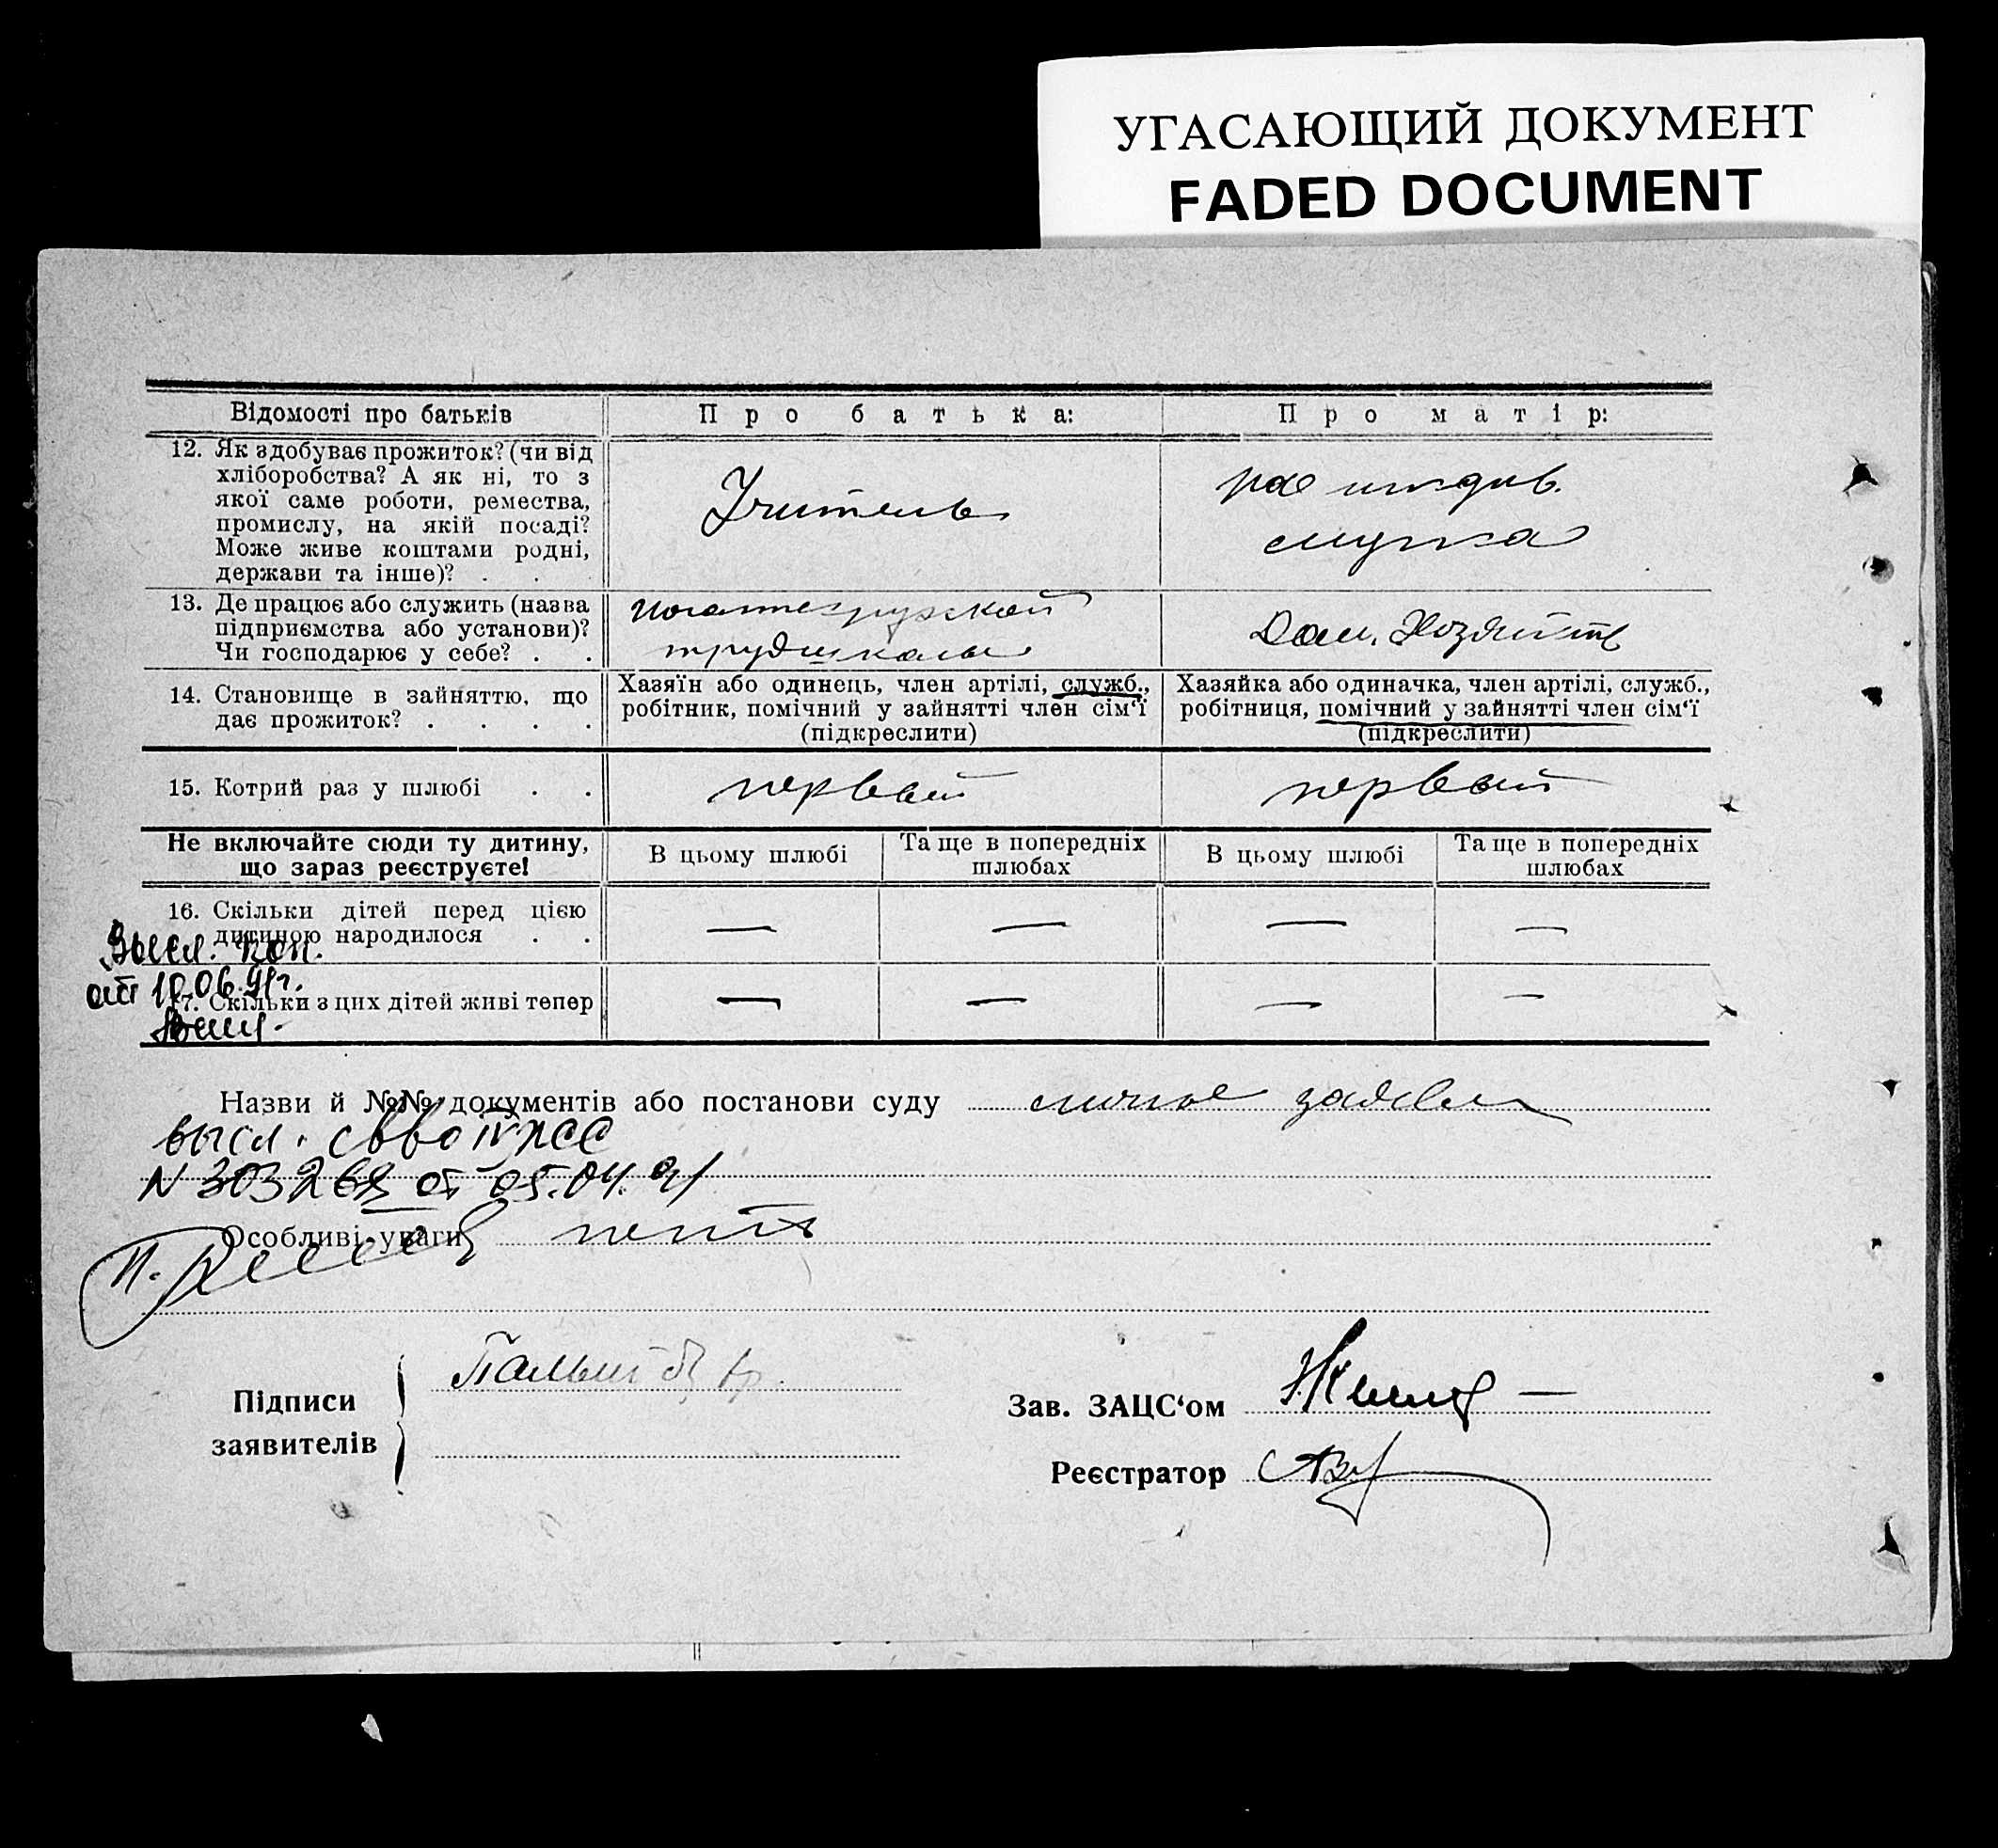 УГАСАЮЩИЙ ДОКУМЕНТ
FADED DOCUMENT
Відомості про батьків
Про батька:
Про матір:
12. Як здобуває прожиток? (чи від
хліборобства? А як ні, то з
якої саме роботи, ремества,
промислу, на якій посаді?
Може живе коштами родні,
держави та інше)? . .
Учитель
на иждив.
мужа
13. Де працює або служить (назва
підприємства або установи)?
Чи господарює у себе? . .
трудшколы
Дом. Хозяйств
14. Становище в зайняттю, що
дає прожиток? . . . .
Хазяїн або одинець, член артілі, служб.,
робітник, помічний у зайнятті член сім‘ї
(підкреслити)
Хазяйка або одиначка, член артілі, служб.,
робітниця, помічний у зайнятті член сім‘ї
(підкреслити)
15. Котрий раз у шлюбі . .
первый
первый
Не включайте сюди ту дитину,
що зараз реєструєте!
В цьому шлюбі
Та ще в попередніх
шлюбах
В цьому шлюбі
Та ще в попередніх
шлюбах
16. Скільки дітей перед цією
дитиною народилося . .
— — — —
Высл. коп.
от 10.06.91г.
17. Скільки з цих дітей живі тепер
— — — —
Назви й №№ документів або постанови суду
личное заявл
высл. св во
N 303269 от 05.04.91
Особливі уваги
Підписи
заявителів
Зав. ЗАЦС‘ом
Реєстратор